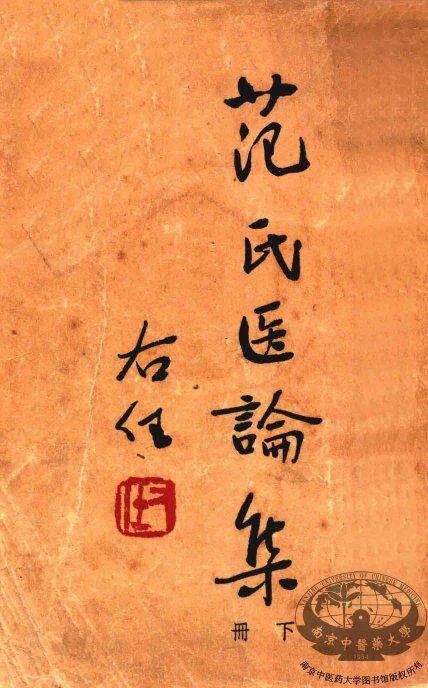 范氏医論集
右任
下冊
NANJING UNIVERSITY OF CHINESE MEDICINE
南京中醫藥大學
1954
南京中医药大学图书馆版权所有